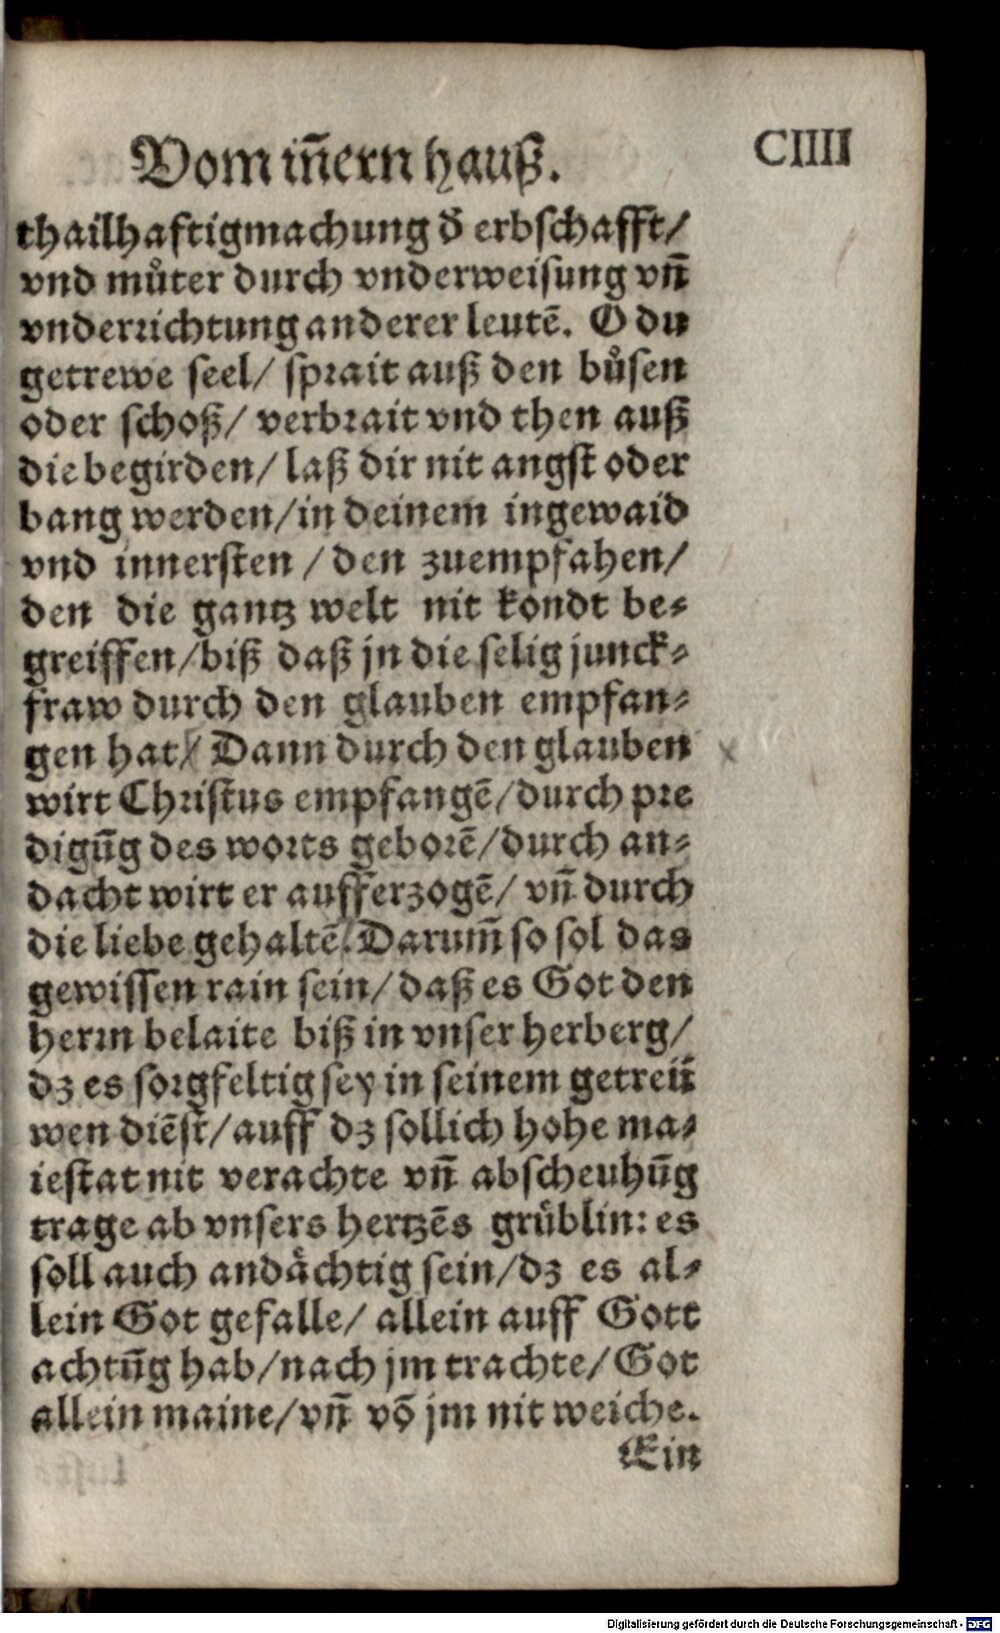 Vom iñern hauß.
CIIII
thailhaftigmachung d̃ erbschafft/
vnd můter durch vnderweisung vñ
vnderrichtung anderer leutẽ. O du
getrewe seel/ sprait auß den bůsen
oder schoß/ verbrait vnd then auß
die begirden/ laß dir nit angst oder
bang werden/in deinem ingewaid
vnd innersten / den zuempfahen/
den die gantz welt nit kondt be-
greiffen/biß daß jn die selig junck-
fraw durch den glauben empfan-
gen hat/ Dann durch den glauben
wirt Christus empfangẽ/durch pre
digũg des worts geborẽ/durch an-
dacht wirt er aufferzogẽ/ vñ durch
die liebe gehaltẽ. Darum̃ so sol das
gewissen rain sein/ daß es Got den
herrn belaite biß in vnser herberg/
dz es sorgfeltig sey in seinem getreü
wen diẽst/auff dz sollich hohe ma-
iestat nit verachte vñ abscheuhũg
trage ab vnsers hertzẽs grüblin: es
soll auch andächtig sein/dz es al-
lein Got gefalle/ allein auff Gott
achtũg hab/nach jm trachte/Got
allein maine/vñ võ jm nit weiche.
Ein
Digitalisierung gefördert durch die Deutsche Forschungsgemeinschaft - DFG